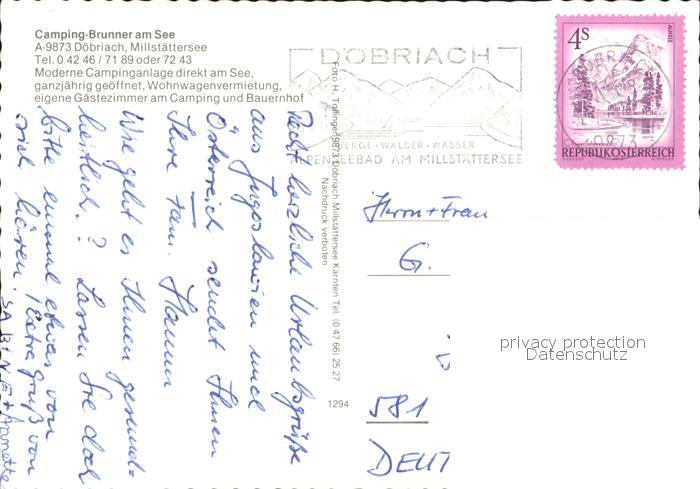 Camping-Brunner am See
A-9873 Döbriach, Millstättersee
Tel. 0 42 46 / 71 89 oder 72 43
Moderne Campinganlage direkt am See,
ganzjährig geöffnet, Wohnwagenvermietung,
eigene Gästezimmer am Camping und Bauernhof
DÖBRIACH
BERGE · WÄLDER · WASSER
ALPENSEEBAD AM MILLSTÄTTERSEE
4s
ALMSEE
9873
REPUBLIK ÖSTERREICH
Recht herzliche Urlaubsgrüße
aus Jugoslawien und
Österreich sendet Ihnen
Ihre Fam. Hamm
Wie geht es Ihnen gesund-
heitlich? Lassen Sie doch
bitte einmal etwas von
sich hören! Extra Gruß von
SABINE + Annette
Foto H. Troflinger 9873 Döbriach Millstättersee Kärnten Tel. (0 47 66) 25 27
Nachdruck verboten
1294
Herrn + Frau
G.
581
DEUT
privacy protection
Datenschutz